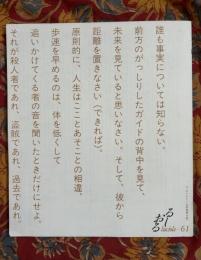 誰も事実については知らない。
前方のがっしりしたガイドの背中を見て、
未来を見ていると思いなさい。そして、彼から
距離を置きなさい(できれば)。
原則的に、人生はこことあそこの相違。
歩速を早めるのは、体を低くして
追いかけてくる者の音を聞いたときだけにせよ。
それが殺人者であれ、盗賊であれ、過去であれ。
るしおる
luciole
61